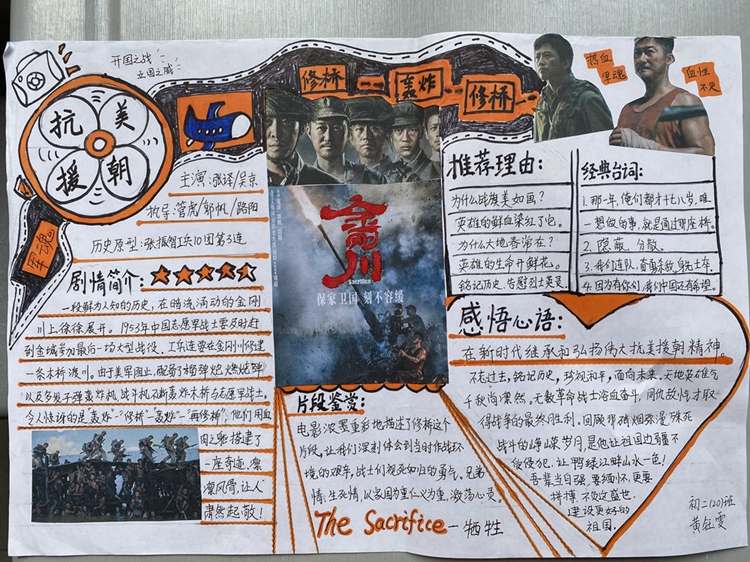 开国之战
立国之威
抗美
援朝
军魂
修桥
轰炸
修桥
热血
军魂
血性
不灭
主演:张译/吴京
执导:管虎/郭帆/路阳
历史原型:张振智工兵10团第3连
剧情简介:
一段鲜为人知的历史,在暗流涌动的金刚
川上徐徐展开。1953年中国志愿军战士要及时赶
到金城参加最后一场大型战役。工兵连要在金刚川修建
一条木桥渡川。由于美军阻止,配备了
以及多蛋子弹轰炸机,战斗机不断轰炸木桥与志愿军战士。
令人惊讶的是“轰炸”-“修桥”-轰炸”-“再修桥”,他们用血
肉之躯搭建了
一座奇迹,凛
凛风骨,让人
肃然起敬!
金刚川
Sacrifice
保家卫国 刻不容缓
片段鉴赏:
电影浓墨重彩地描述了修桥这个
片段,让我们深刻体会到当时作战环
境的艰辛,战士们视死如归的勇气。兄弟
情,生死情,以家国为重仁义为重,激荡心灵。
The Sacrifice—牺牲
推荐理由:
为什么战旗美如画?
英雄的鲜血染红了它。
为什么大地春常在?
英雄的生命开鲜花。
铭记历史、告慰烈士英灵
经典台词:
1.那一年,俺们都才十七八岁,唯
一想做的事,就是通过那座桥。
2.隐蔽,分散。
3.我们连队,奋勇杀敌,身先士卒。
4.因为有你们,我们中国还有希望。
感悟心语:
在新时代继承和弘扬伟大抗美援朝精神
不忘过去,铭记历史,珍视和平,面向未来。天地英雄气
千秋尚凛然。无数革命战士浴血奋斗,同仇敌忾才取
得战争的最终胜利。回顾那硝烟弥漫,殊死
战斗的峥嵘岁月,是他让祖国边疆不
受侵犯,让鸭绿江畔山水一色!
吾辈当自强,要缅怀,更要
拼搏,不负这盛世,
建设更好的
祖国。
初二(20)班